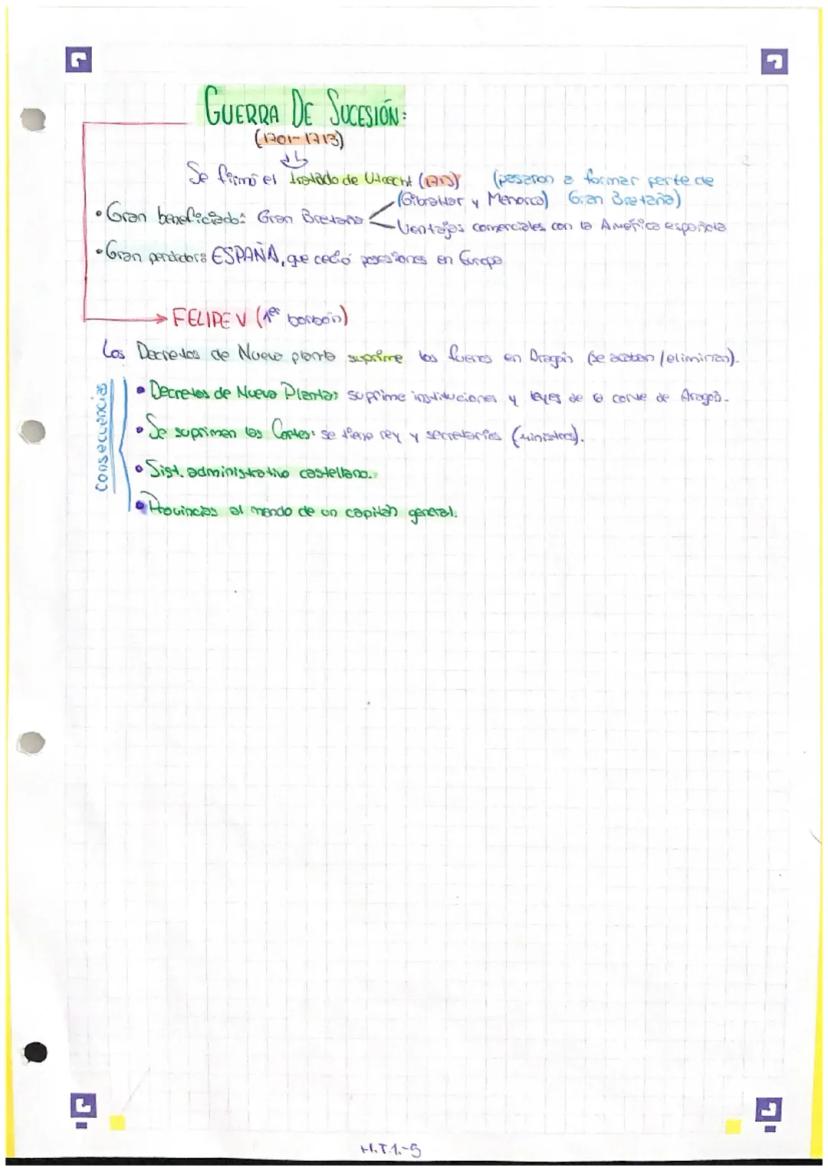 GUERRA DE SUCESIÓN:
(1701-1713)
Se firmó el tratado de Utrecht (1713) (pasaron a formar parte de
(Gibraltar y Menorca) Gran Bretaña)
• Gran beneficiado: Gran Bretaña
Ventajas comerciales con la América española
• Gran perdidora ESPAÑA, que cedió posesiones en Europa
FELIPE V (1er borbón)
Los Decretos de Nueva planta suprime los fueros en Aragón (se acaban/eliminan).
consecuencias
• Decretos de Nueva Planta: suprime instituciones y leyes de la corona de Aragón.
• Se suprimen las Cortes: se tiene rey y secretarios (ministros).
• Sist. administrativo castellano.
• Provincias al mando de un capitán general.
H.T.1.-5